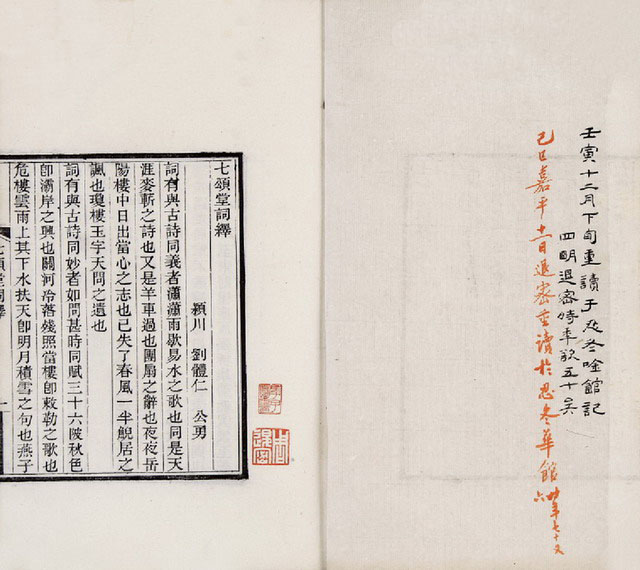 壬寅十二月下旬重讀于忍冬唫館記
四明退密時年五十矣
己巳嘉平十一日退密重讀於忍冬華館
時年七十又
六
七頌堂詞繹
潁川 劉體仁 公勇
詞有與古詩同義者瀟瀟雨歇易水之歌也同是天
涯麥蘄之詩也又是羊車過也團扇之辭也夜夜岳
陽樓中日出當心之志也已失了春風一半鯢居之
諷也瓊樓玉宇天問之遺也
詞有與古詩同妙者如問甚時同賦三十六陂秋色
卽灞岸之興也關河冷落殘照當樓卽敕勒之歌也
危樓雲雨上其下水扶天卽明月積雪之句也燕子
七頌堂詞繹
一